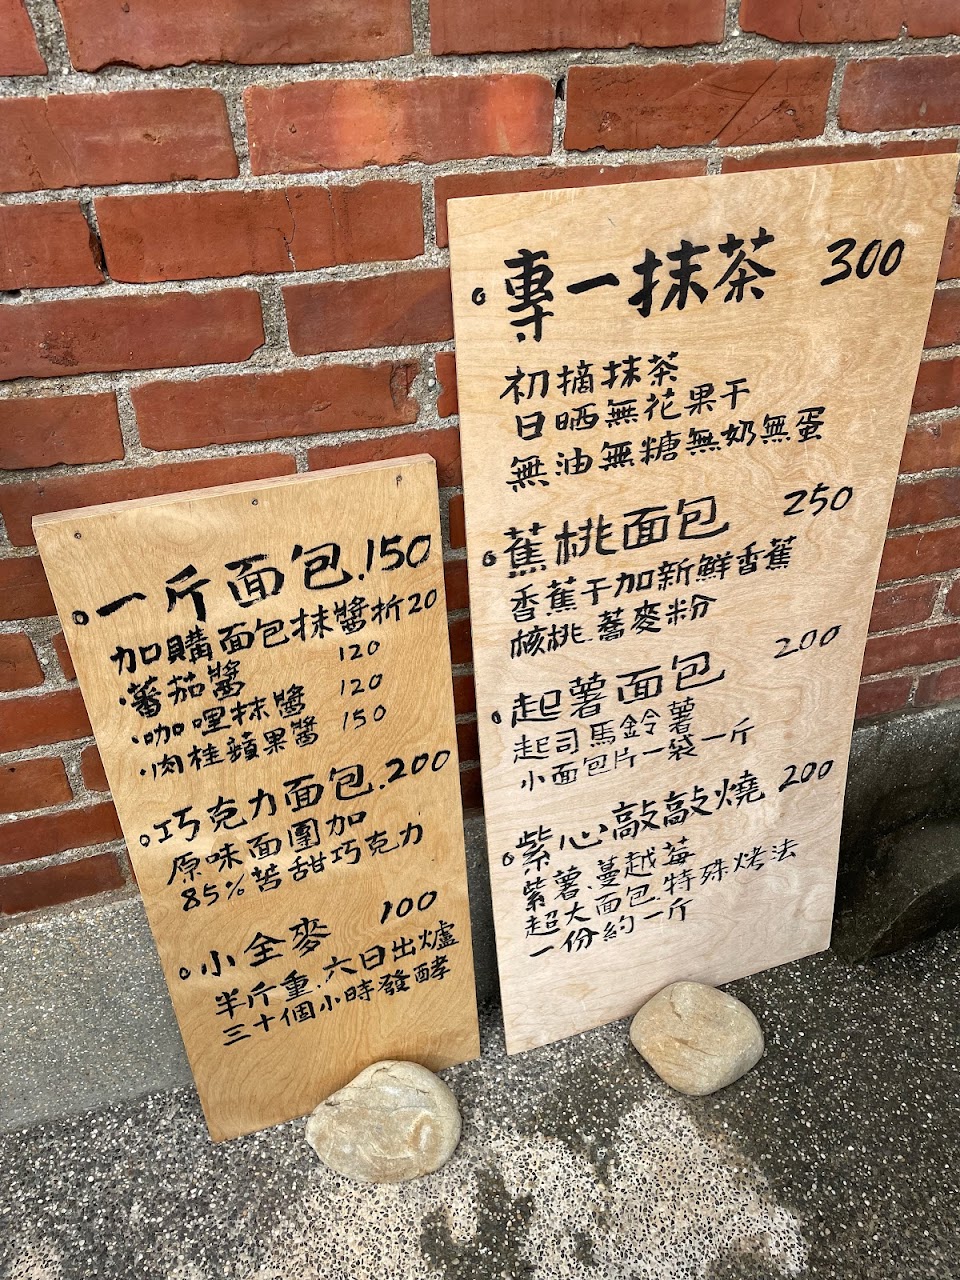 一斤面包.150
加購面包抹醬折20
·蕃茄醬 120
·咖哩抹醬 120
·肉桂蘋果醬 150
巧克力面包.200
原味面團加
85%苦甜巧克力
小全麥 100
半斤重.六日出爐
三十個小時發酵
專一抹茶 300
初摘抹茶
日晒無花果干
無油無糖無奶無蛋
蕉桃面包 250
香蕉干加新鮮香蕉
核桃.蕎麥粉
起薯面包 200
起司馬鈴薯
小面包片一袋一斤
紫心敲敲燒 200
紫薯.蔓越莓
超大面包.特殊烤法
一份約一斤